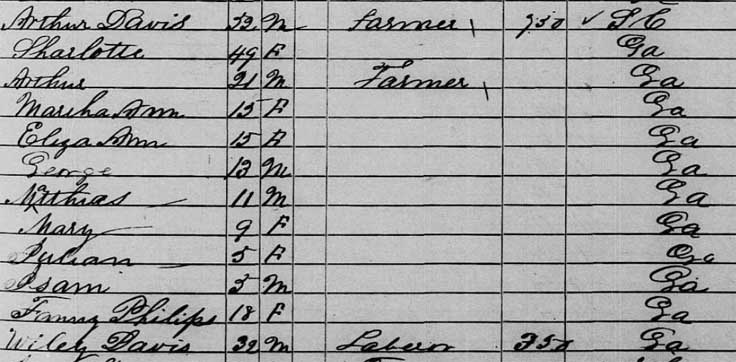 Arthur Davis 52 M Farmer 750 ✓ S C
Sharlotte 49 F Ga
Arthur 21 M Farmer Ga
Marsha Ann 15 F Ga
Eliza Ann 15 F Ga
George 13 M Ga
Matthias 11 M Ga
Mary 9 F Ga
Julian 5 F Ga
Isam 3 M Ga
Fanny Philips 18 F Ga
Wiley Davis 32 M Laberor 350 Ga